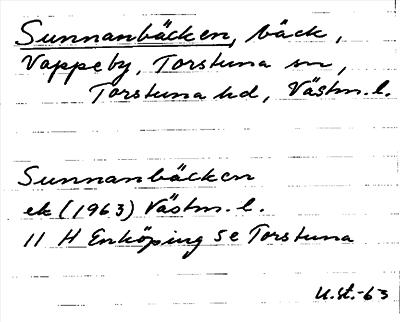 Sunnanbäcken, bäck,
Vappeby, Torstuna sn,
Torstuna hd, Västm. l.
Sunnanbäcken
ek (1963) Västm. l.
11 H Enköping SE Torstuna
U.St.-63